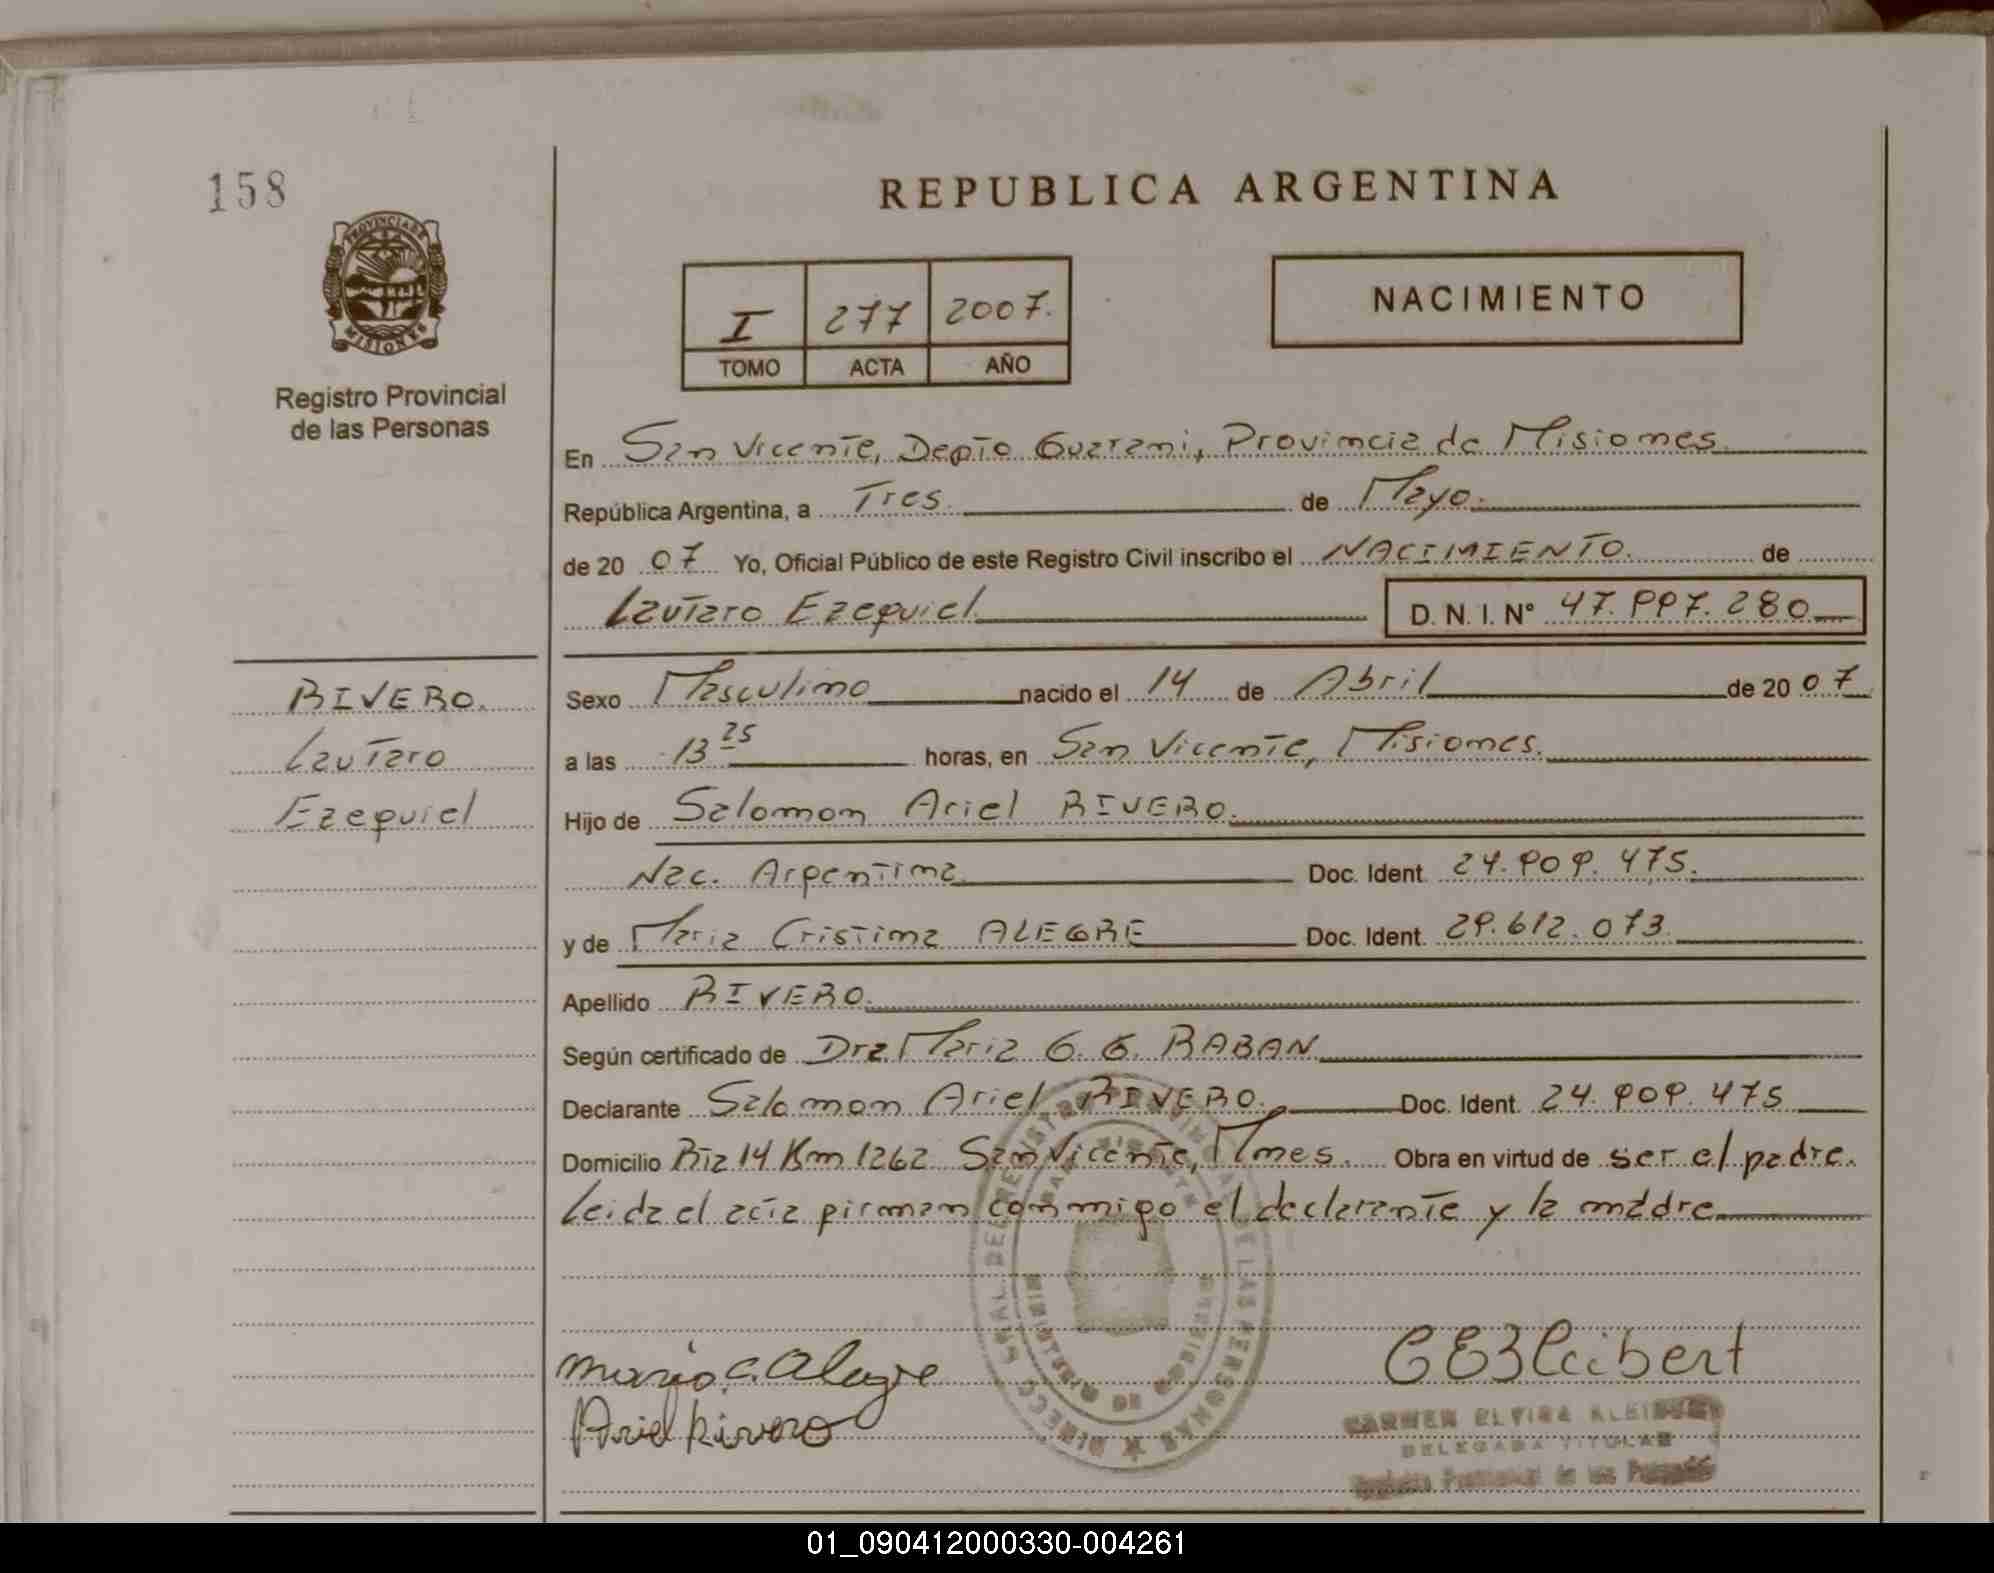 158
REPUBLICA ARGENTINA
PROVINCIA DE
MISIONES
Registro Provincial
de las Personas
I 277 2007.
TOMO ACTA AÑO
NACIMIENTO
En San Vicente, Depto Guarani, Provincia de Misiones
República Argentina, a Tres de Mayo.
de 20 07 Yo, Oficial Público de este Registro Civil inscribo el NACIMIENTO. de
Lautaro Ezequiel D. N. I. N° 47.997.280
RIVERO.
Lautaro
Ezequiel
Sexo Masculino nacido el 14 de Abril de 20 07
a las 13 25 horas, en San Vicente, Misiones.
Hijo de Salomon Ariel RIVERO.
Nac. Argentina Doc. Ident. 24.909.475.
y de Maria Cristina ALEGRE Doc. Ident. 29.612.073.
Apellido RIVERO.
Según certificado de Dra. Maria G. G. RABAN
Declarante Salomon Ariel RIVERO. Doc. Ident. 24.909.475
Domicilio Rta 14 Km 1262 San Vicente, Mnes. Obra en virtud de ser el padre.
Leida el acta firman conmigo el declarante y la madre
Maria C. Alegre
Ariel Rivero
CEKleibert
CARMEN ELVIRA KLEIBERT
DELEGADA TITULAR
Registro Provincial de las Personas
01_090412000330-004261